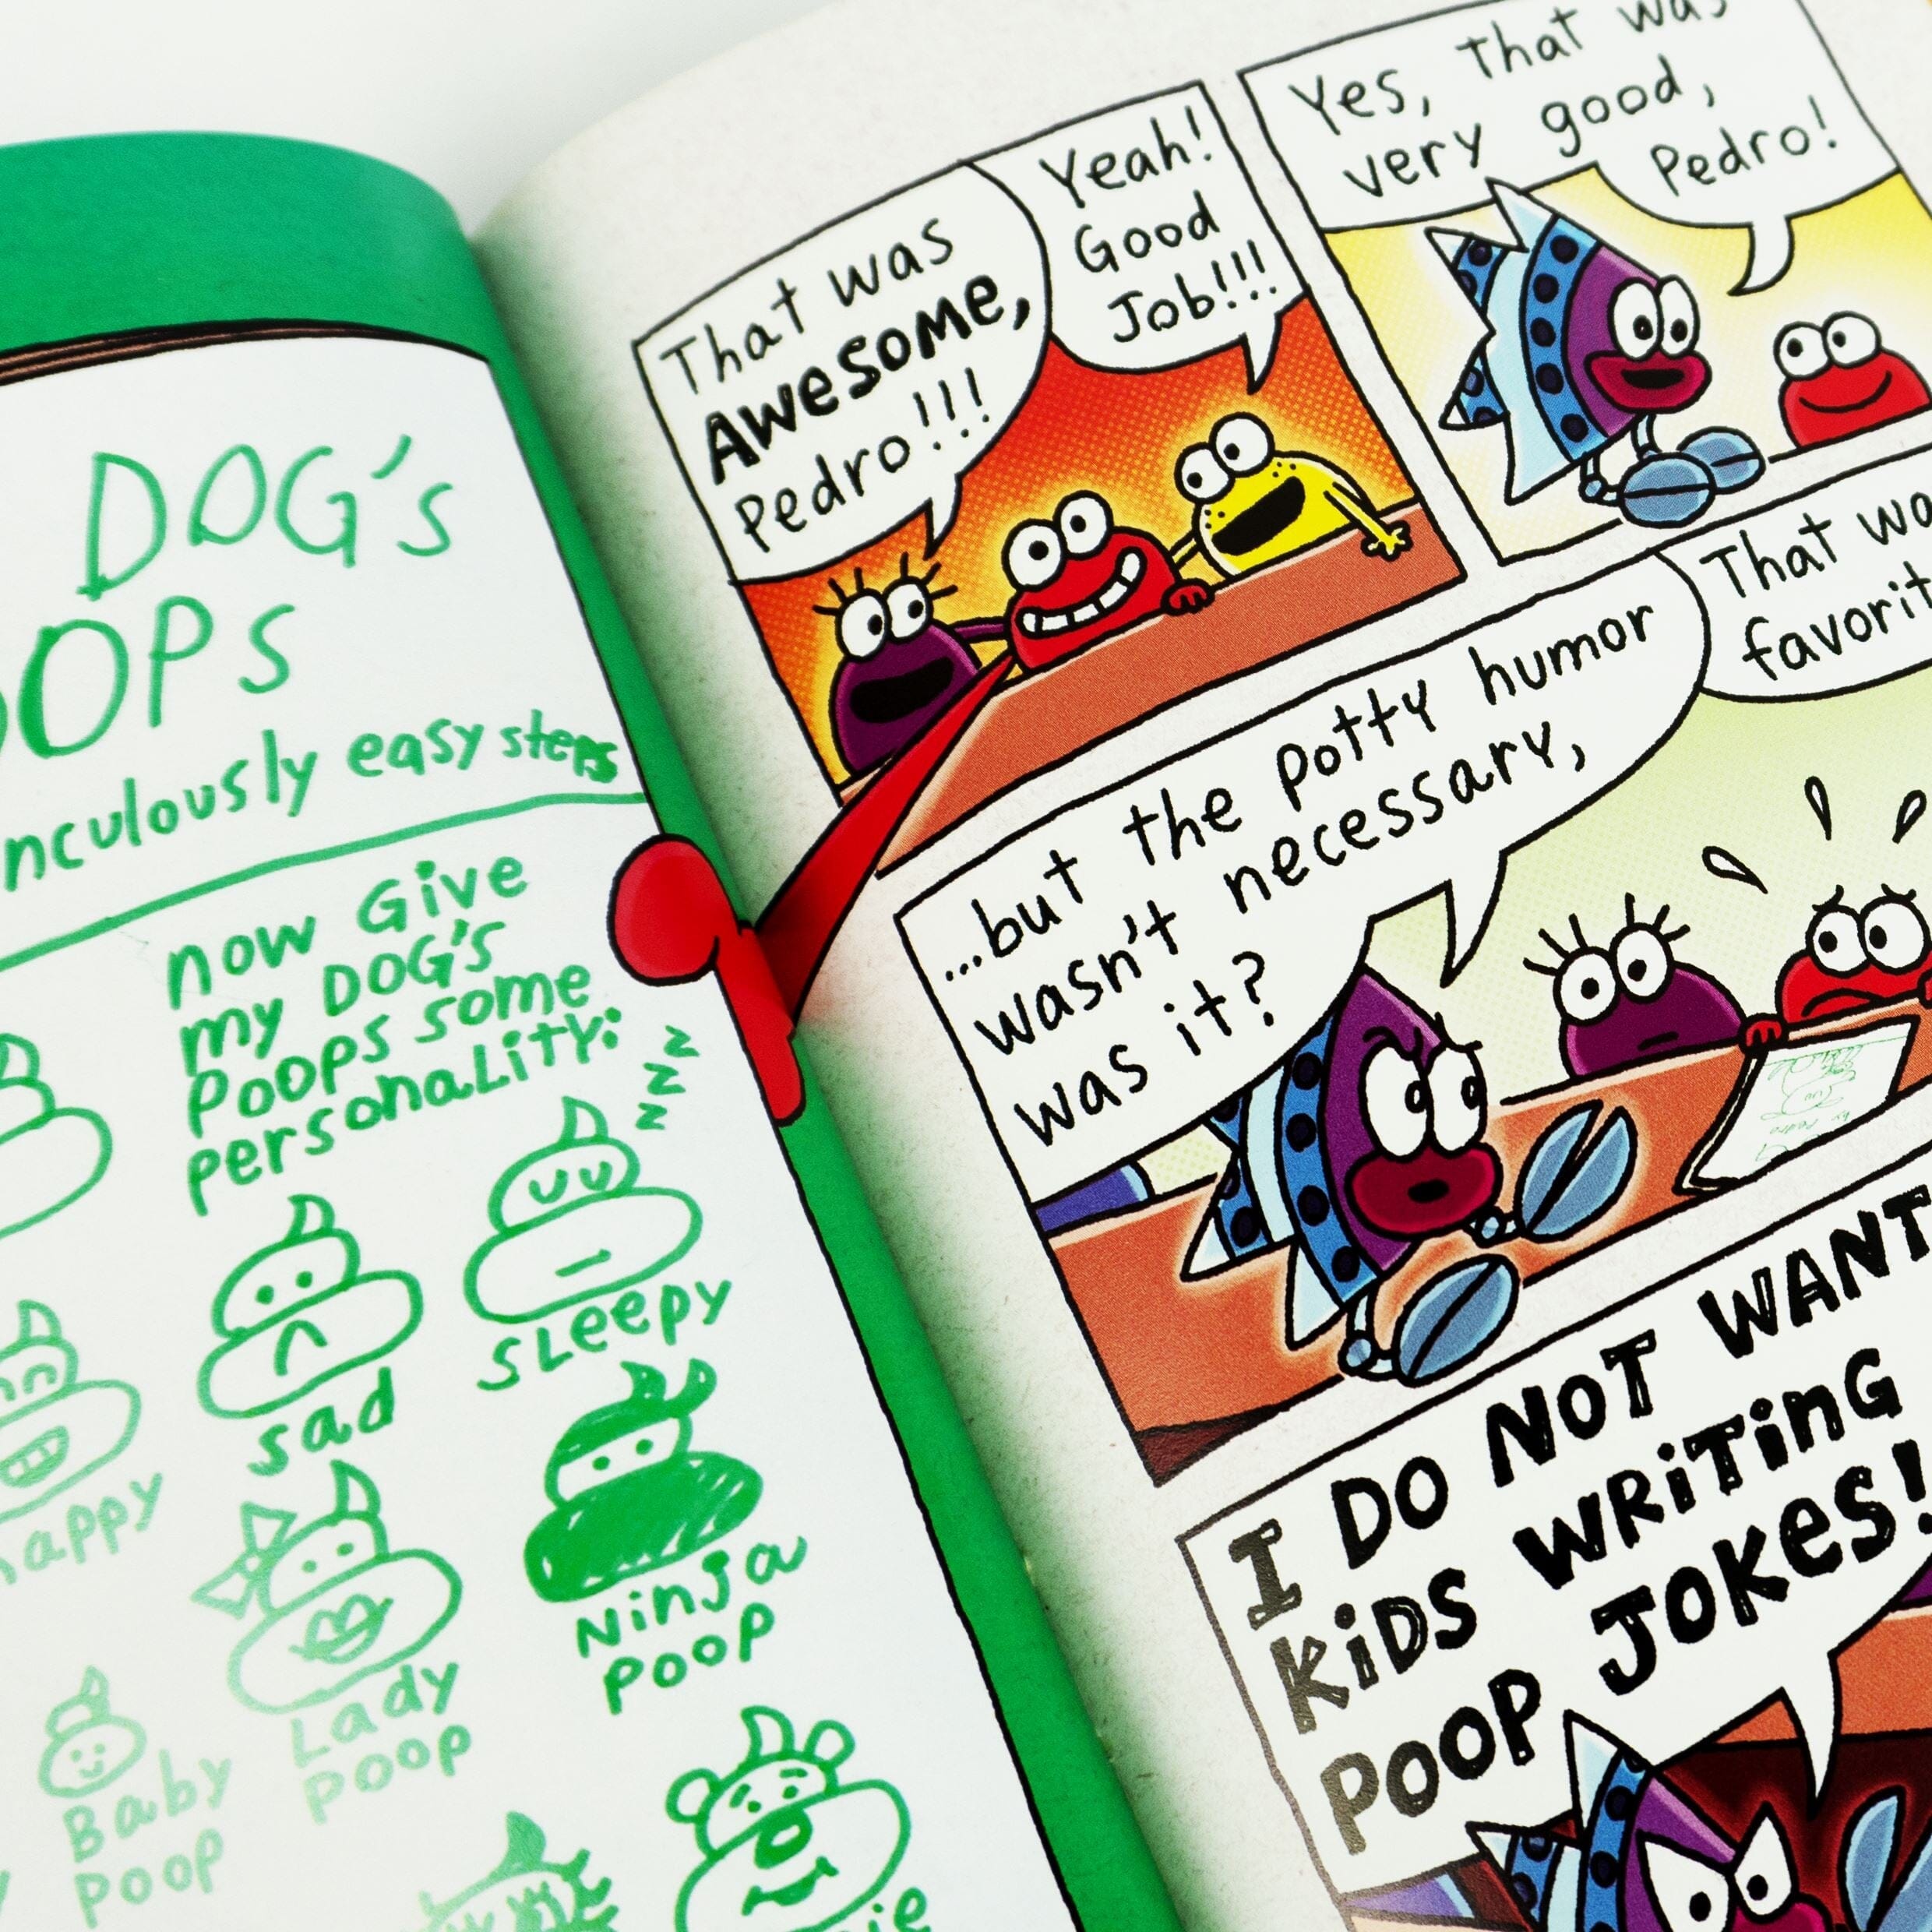 DOG's
OOPS
nculously easy steps
now Give
my DOG's
Poops some
personality:
zzz
sleepy
sad
happy
Ninja
poop
Lady
poop
Baby
poop
That was
Awesome,
Pedro!!!
Yeah!
Good
Job!!!
Yes, that was
very good,
Pedro!
...but the potty humor
wasn't necessary,
was it?
That wa
favorit
I DO NOT WANT
KiDS WRiTinG
POOP JOKeS!